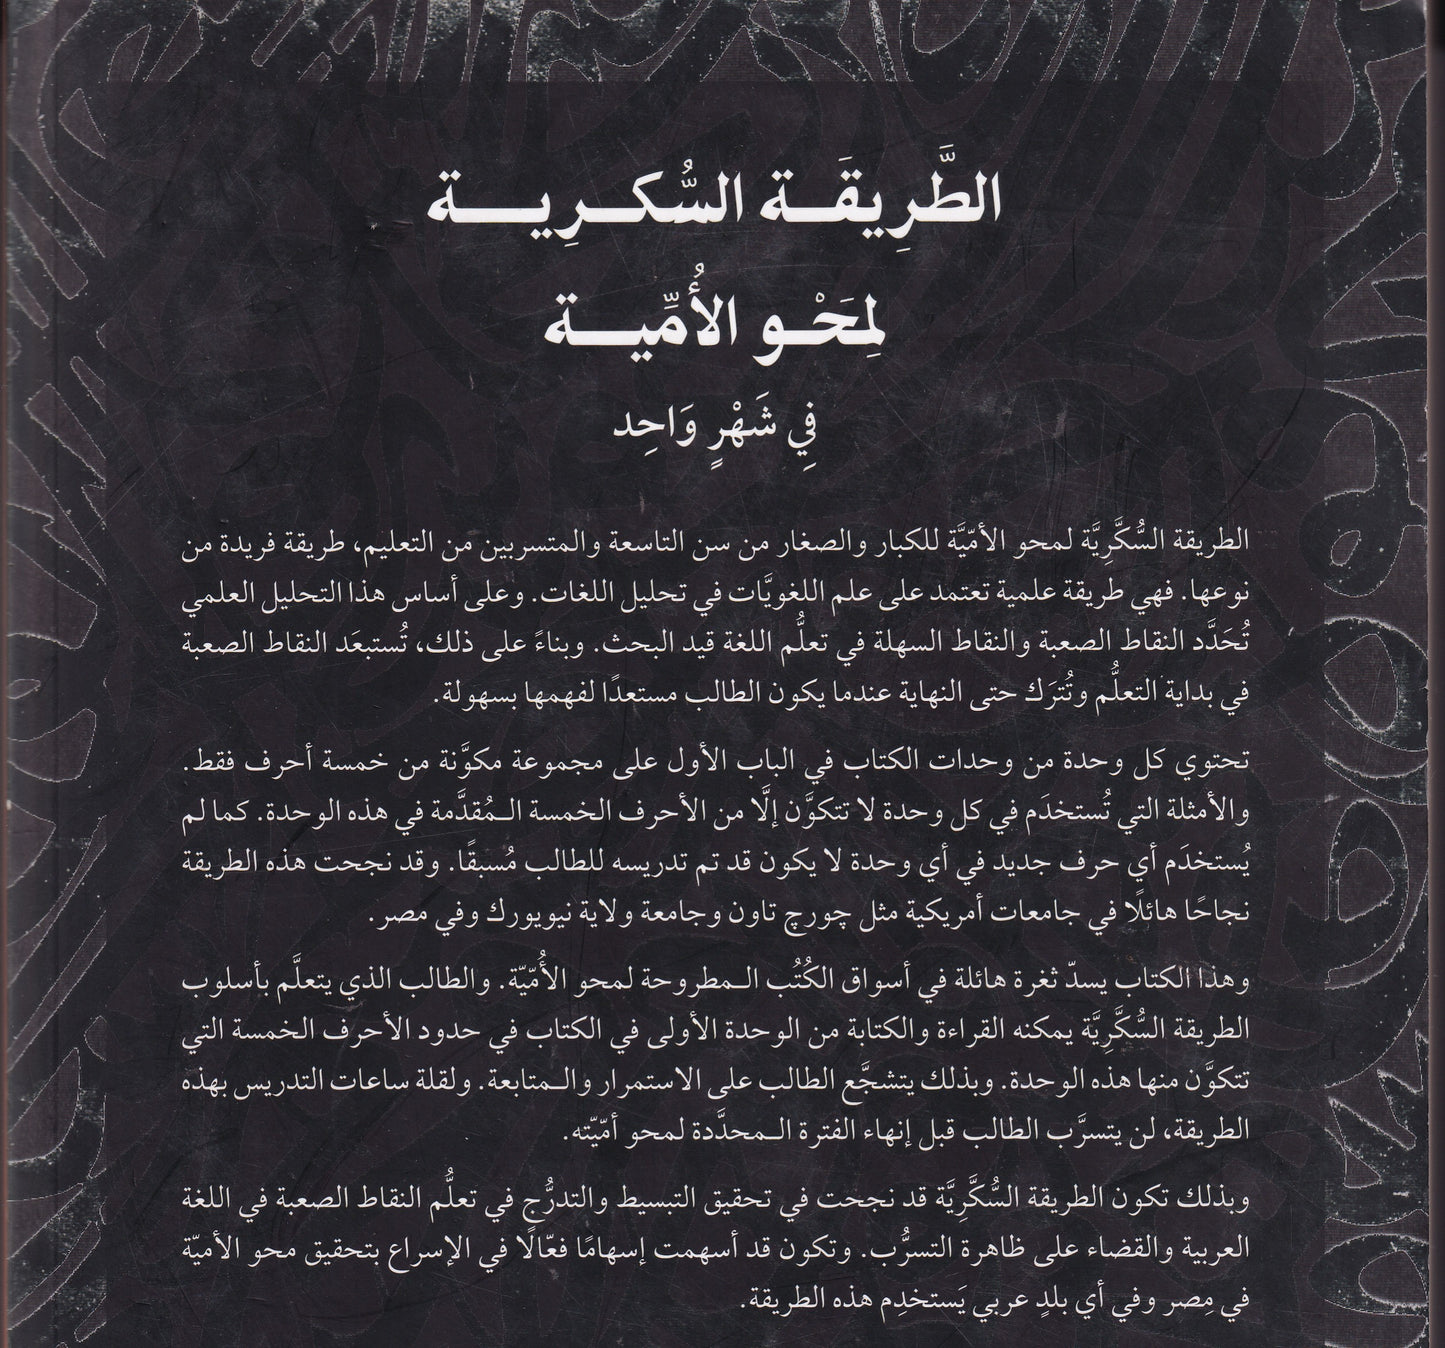 الطَّرِيقَة السُّكرِية
لِمَحْو الأُمِّية
فِي شَهْرٍ وَاحِد
الطريقة السُّكَّرِيَّة لمحو الأمّيَّة للكبار والصغار من سن التاسعة والمتسربين من التعليم، طريقة فريدة من
نوعها. فهي طريقة علمية تعتمد على علم اللغويَّات في تحليل اللغات. وعلى أساس هذا التحليل العلمي
تُحَدَّد النقاط الصعبة والنقاط السهلة في تعلُّم اللغة قيد البحث. وبناءً على ذلك، تُستبعَد النقاط الصعبة
في بداية التعلُّم وتُترَك حتى النهاية عندما يكون الطالب مستعدًا لفهمها بسهولة.
تحتوي كل وحدة من وحدات الكتاب في الباب الأول على مجموعة مكوَّنة من خمسة أحرف فقط.
والأمثلة التي تُستخدَم في كل وحدة لا تتكوَّن إلَّا من الأحرف الخمسة الـمُقدَّمة في هذه الوحدة. كما لم
يُستخدَم أي حرف جديد في أي وحدة لا يكون قد تم تدريسه للطالب مُسبقًا. وقد نجحت هذه الطريقة
نجاحًا هائلًا في جامعات أمريكية مثل چورچ تاون وجامعة ولاية نيويورك وفي مصر.
وهذا الكتاب يسدّ ثغرة هائلة في أسواق الكُتُب الـمطروحة لمحو الأُمّيّة. والطالب الذي يتعلَّم بأسلوب
الطريقة السُّكَّرِيَّة يمكنه القراءة والكتابة من الوحدة الأولى في الكتاب في حدود الأحرف الخمسة التي
تتكوَّن منها هذه الوحدة. وبذلك يتشجَّع الطالب على الاستمرار والـمتابعة. ولقلة ساعات التدريس بهذه
الطريقة، لن يتسرَّب الطالب قبل إنهاء الفترة الـمحدَّدة لمحو أمّيّته.
وبذلك تكون الطريقة السُّكَّرِيَّة قد نجحت في تحقيق التبسيط والتدرُّج في تعلُّم النقاط الصعبة في اللغة
العربية والقضاء على ظاهرة التسرُّب. وتكون قد أسهمت إسهامًا فعّالًا في الإسراع بتحقيق محو الأميّة
في مِصر وفي أي بلدٍ عربي يَستخدِم هذه الطريقة.